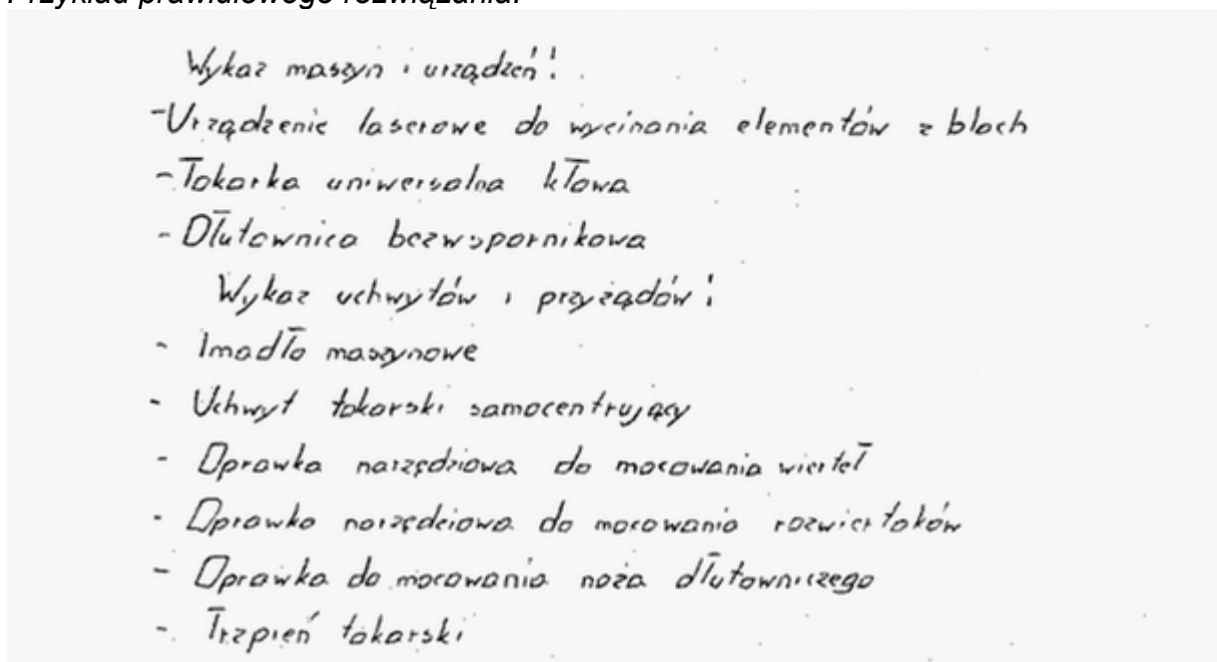 Przykład prawidłowego rozwiązania:
Wykaz maszyn i urządzeń:
-Urządzenie laserowe do wycinania elementów z blach
-Tokarka uniwersalna kłowa
- Dłutownica bezwspornikowa
Wykaz uchwytów i przyrządów:
- Imadło maszynowe
- Uchwyt tokarski samocentrujący
- Oprawka narzędziowa do mocowania wierteł
- Oprawka narzędziowa do mocowania rozwiertaków
- Oprawka do mocowania noża dłutowniczego
- Trzpień tokarski